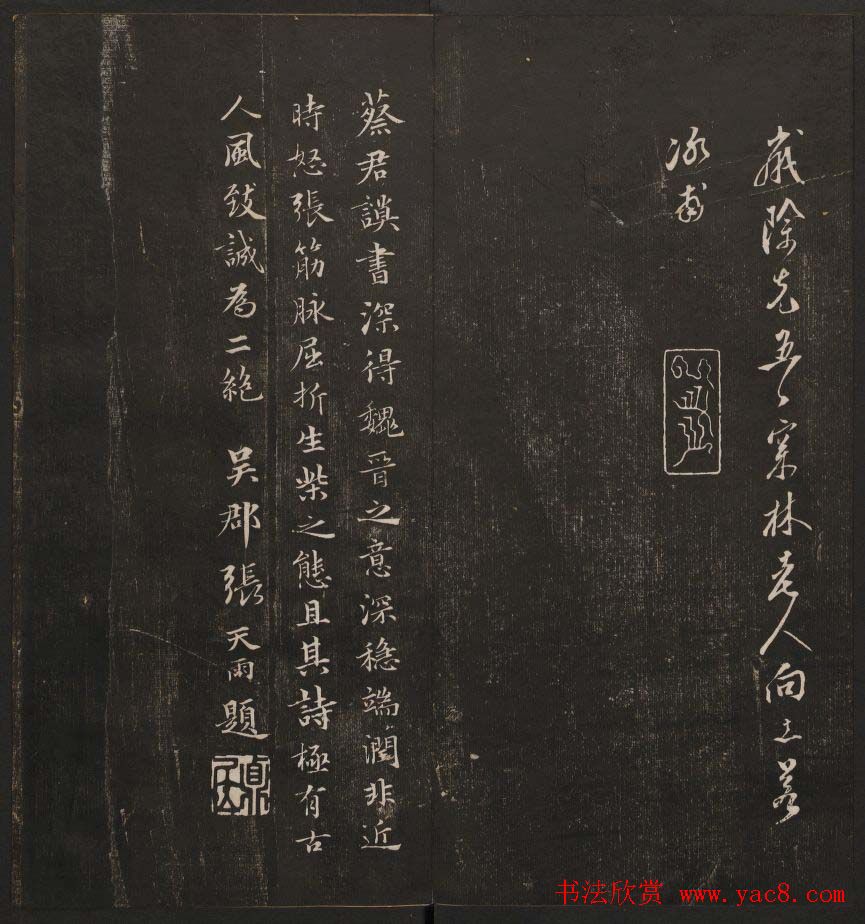 歲除先五日林老人向水若
冰甫
蔡君謨書深得魏晉之意深穩端潤非近
時怒張筋脉屈折生柴之態且其詩極有古
人風致誠為二絶 吳郡張天雨題
书法欣赏 www.yac8.com